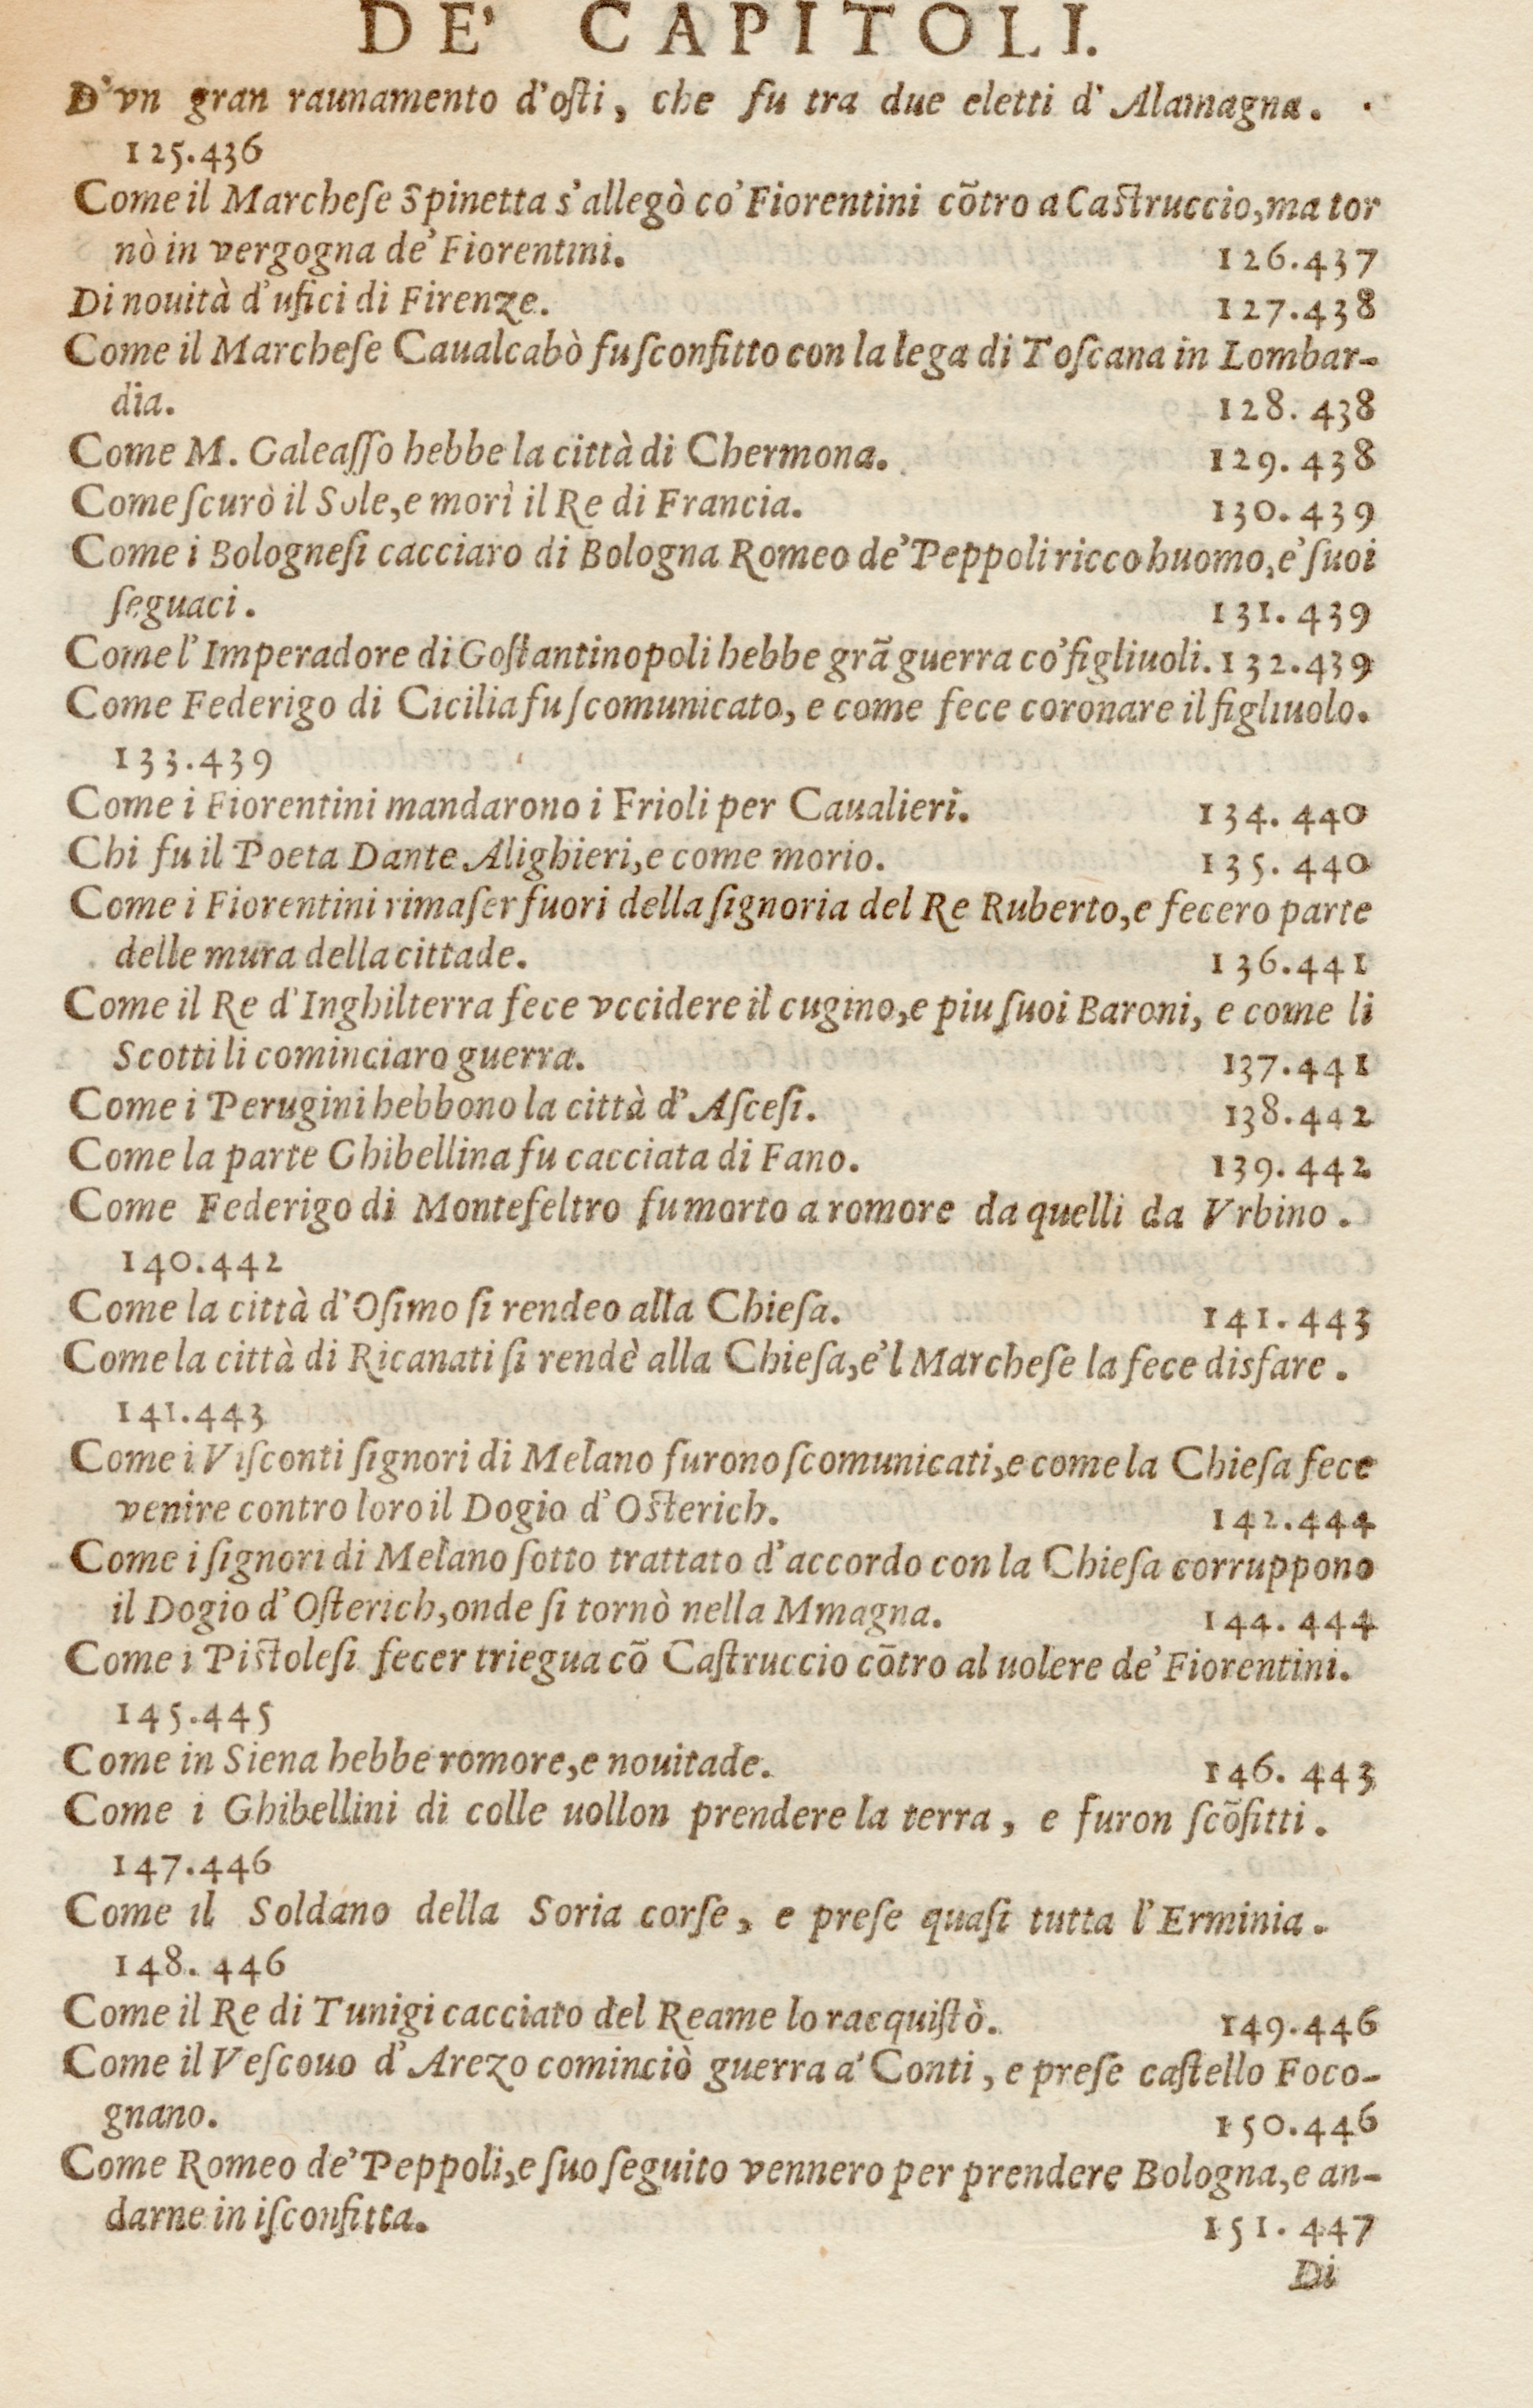 DE' CAPITOLI.
D'vn gran raunamento d'oſti, che fu tra due eletti d'Alamagna.
125.436
Come il Marcheſe Spinetta s'allegò co'Fiorentini cõtro a Caſtruccio,ma tor
nò in vergogna de'Fiorentini. 126.437
Di nouità d'ufici di Firenze. 127.438
Come il Marcheſe Caualcabò fu ſconfitto con la lega di Toſcana in Lombar-
dia. 128. 438
Come M. Galeaſſo hebbe la città di Chermona. 129. 438
Come ſcurò il Sole,e morì il Re di Francia. 130. 439
Come i Bologneſi cacciaro di Bologna Romeo de'Peppoli ricco huomo,e'ſuoi
ſeguaci. 131. 439
Come l'Imperadore di Goſtantinopoli hebbe grã guerra co'figliuoli. 132.439
Come Federigo di Cicilia fu ſcomunicato, e come fece coronare il figliuolo.
133.439
Come i Fiorentini mandarono i Frioli per Caualieri. 134. 440
Chi fu il Poeta Dante Alighieri,e come morio. 135. 440
Come i Fiorentini rimaſer fuori della ſignoria del Re Ruberto,e fecero parte
delle mura della cittade. 136.441
Come il Re d'Inghilterra fece vccidere il cugino,e piu ſuoi Baroni, e come li
Scotti li cominciaro guerra. 137.441
Come i Perugini hebbono la città d'Aſceſi. 138.442
Come la parte Ghibellina fu cacciata di Fano. 139. 442
Come Federigo di Montefeltro fu morto a romore da quelli da Vrbino.
140.442
Come la città d'Oſimo ſi rendeo alla Chieſa. 141. 443
Come la città di Ricanati ſi rendè alla Chieſa,e'l Marcheſe la fece disfare.
141.443
Come i Viſconti ſignori di Melano furono ſcomunicati,e come la Chieſa fece
venire contro loro il Dogio d'Oſterich. 142.444
Come i ſignori di Melano ſotto trattato d'accordo con la Chieſa corruppono
il Dogio d'Oſterich,onde ſi tornò nella Mmagna. 144. 444
Come i Piſtoleſi fecer triegua cõ Caſtruccio cõtro al uolere de'Fiorentini.
145.445
Come in Siena hebbe romore,e nouitade. 146. 443
Come i Ghibellini di colle uollon prendere la terra, e furon ſcõfitti.
147.446
Come il Soldano della Soria corſe, e preſe quaſi tutta l'Erminia.
148. 446
Come il Re di Tunigi cacciato del Reame lo racquiſtò. 149.446
Come il Veſcouo d'Arezo cominciò guerra a'Conti, e preſe caſtello Foco-
gnano. 150.446
Come Romeo de'Peppoli,e ſuo ſeguito vennero per prendere Bologna,e an-
darne in iſconfitta. 151. 447
Di